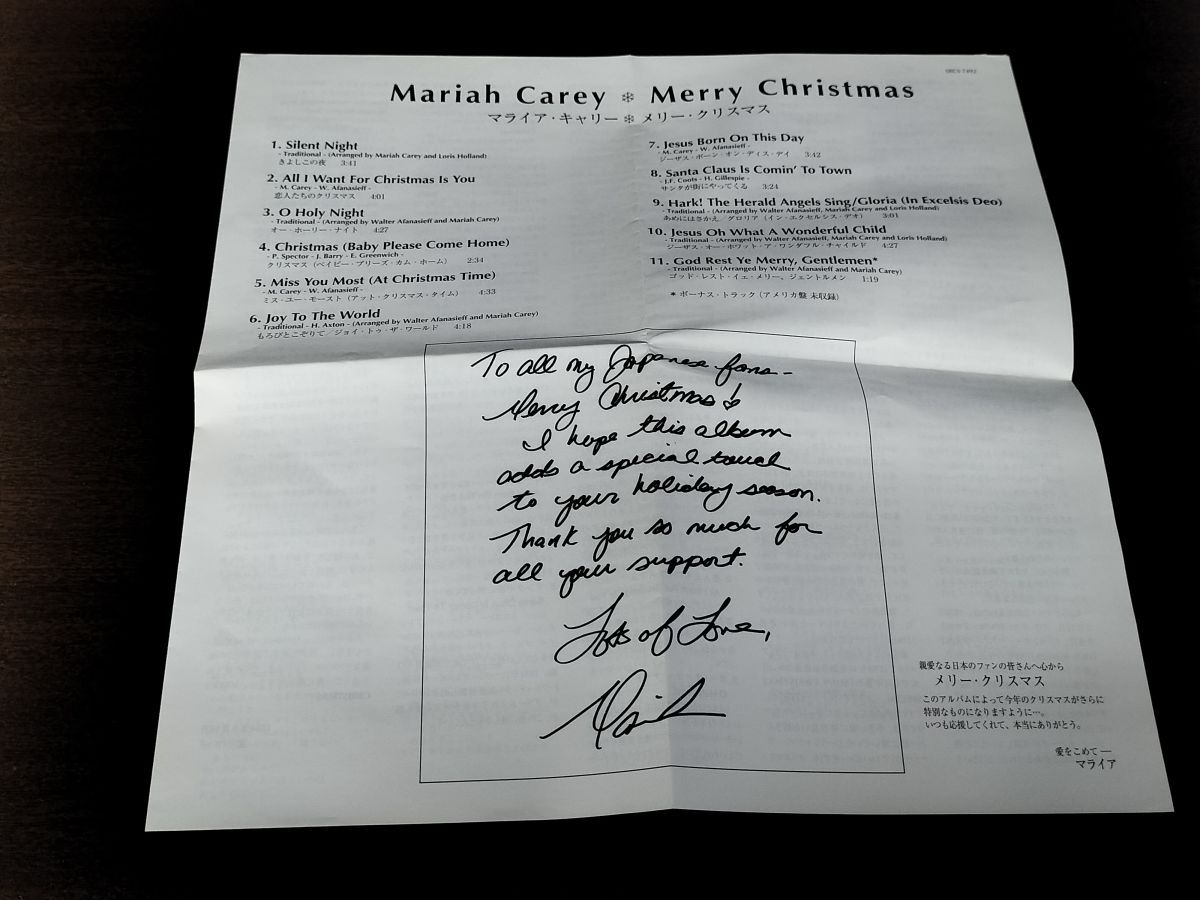 SRCS 7492
Mariah Carey ❄ Merry Christmas
マライア・キャリー❄メリー・クリスマス
1. Silent Night
- Traditional - (Arranged by Mariah Carey and Loris Holland)
きよしこの夜 3:41
2. All I Want For Christmas Is You
- M. Carey - W. Afanasieff -
恋人たちのクリスマス 4:01
3. O Holy Night
- Traditional - (Arranged by Walter Afanasieff and Mariah Carey)
オー・ホーリー・ナイト 4:27
4. Christmas (Baby Please Come Home)
- P. Spector - J. Barry - E. Greenwich -
クリスマス（ベイビー・プリーズ・カム・ホーム） 2:34
5. Miss You Most (At Christmas Time)
- M. Carey - W. Afanasieff -
ミス・ユー・モースト（アット・クリスマス・タイム） 4:33
6. Joy To The World
- Traditional - H. Axton - (Arranged by Walter Afanasieff and Mariah Carey)
もろびとこぞりて／ジョイ・トゥ・ザ・ワールド 4:18
7. Jesus Born On This Day
- M. Carey - W. Afanasieff -
ジーザス・ボーン・オン・ディス・デイ 3:42
8. Santa Claus Is Comin' To Town
- J.F. Coots - H. Gillespie -
サンタが街にやってくる 3:24
9. Hark! The Herald Angels Sing/Gloria (In Excelsis Deo)
- Traditional - (Arranged by Walter Afanasieff, Mariah Carey and Loris Holland)
あめにはさかえ／グロリア（イン・エクセルシス・デオ） 3:01
10. Jesus Oh What A Wonderful Child
- Traditional - (Arranged by Walter Afanasieff, Mariah Carey and Loris Holland)
ジーザス・オー・ホワット・ア・ワンダフル・チャイルド 4:27
11. God Rest Ye Merry, Gentlemen*
- Traditional - (Arranged by Walter Afanasieff and Mariah Carey)
ゴッド・レスト・イェ・メリー、ジェントルメン 1:19
＊ボーナス・トラック（アメリカ盤 未収録）
To all my Japanese fans-
Merry Christmas!
I hope this album
adds a special touch
to your holiday season.
Thank you so much for
all your support.
Lots of Love,
Mariah
親愛なる日本のファンの皆さんへ心から
メリー・クリスマス
このアルバムによって今年のクリスマスがさらに
特別なものになりますように…。
いつも応援してくれて、本当にありがとう。
愛をこめて—
マライア